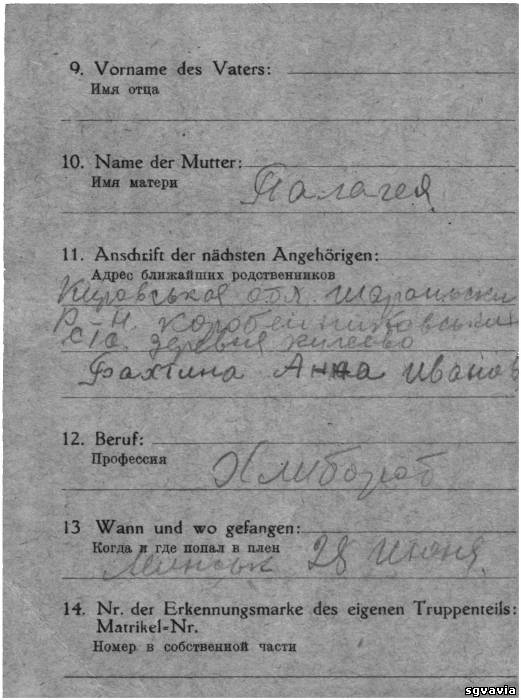 9. Vorname des Vaters:
Имя отца
10. Name der Mutter:
Палагея
Имя матери
11. Anschrift der nächsten Angehörigen:
Адрес ближайших родственников
Кировськая обл.
Р-Н. коробейниковський
С/с. деревня
Бахтина Анна Иванов
12. Beruf:
Профессия
Хлибороб
13 Wann und wo gefangen:
Когда и где попал в плен
Минськ 28 июня.
14. Nr. der Erkennungsmarke des eigenen Truppenteils:
Matrikel-Nr.
Номер в собственной части
sgvavia